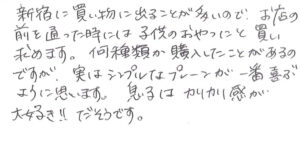 新宿に買い物に出ることが多いので、お店の
前を通った時には子供のおやつにと買い
求めます。何種類か購入したことがあるの
ですが、実はシンプルなプレーンが一番喜ぶ
ように思います。息子はカリカリ感が
大好き!!だそうです。